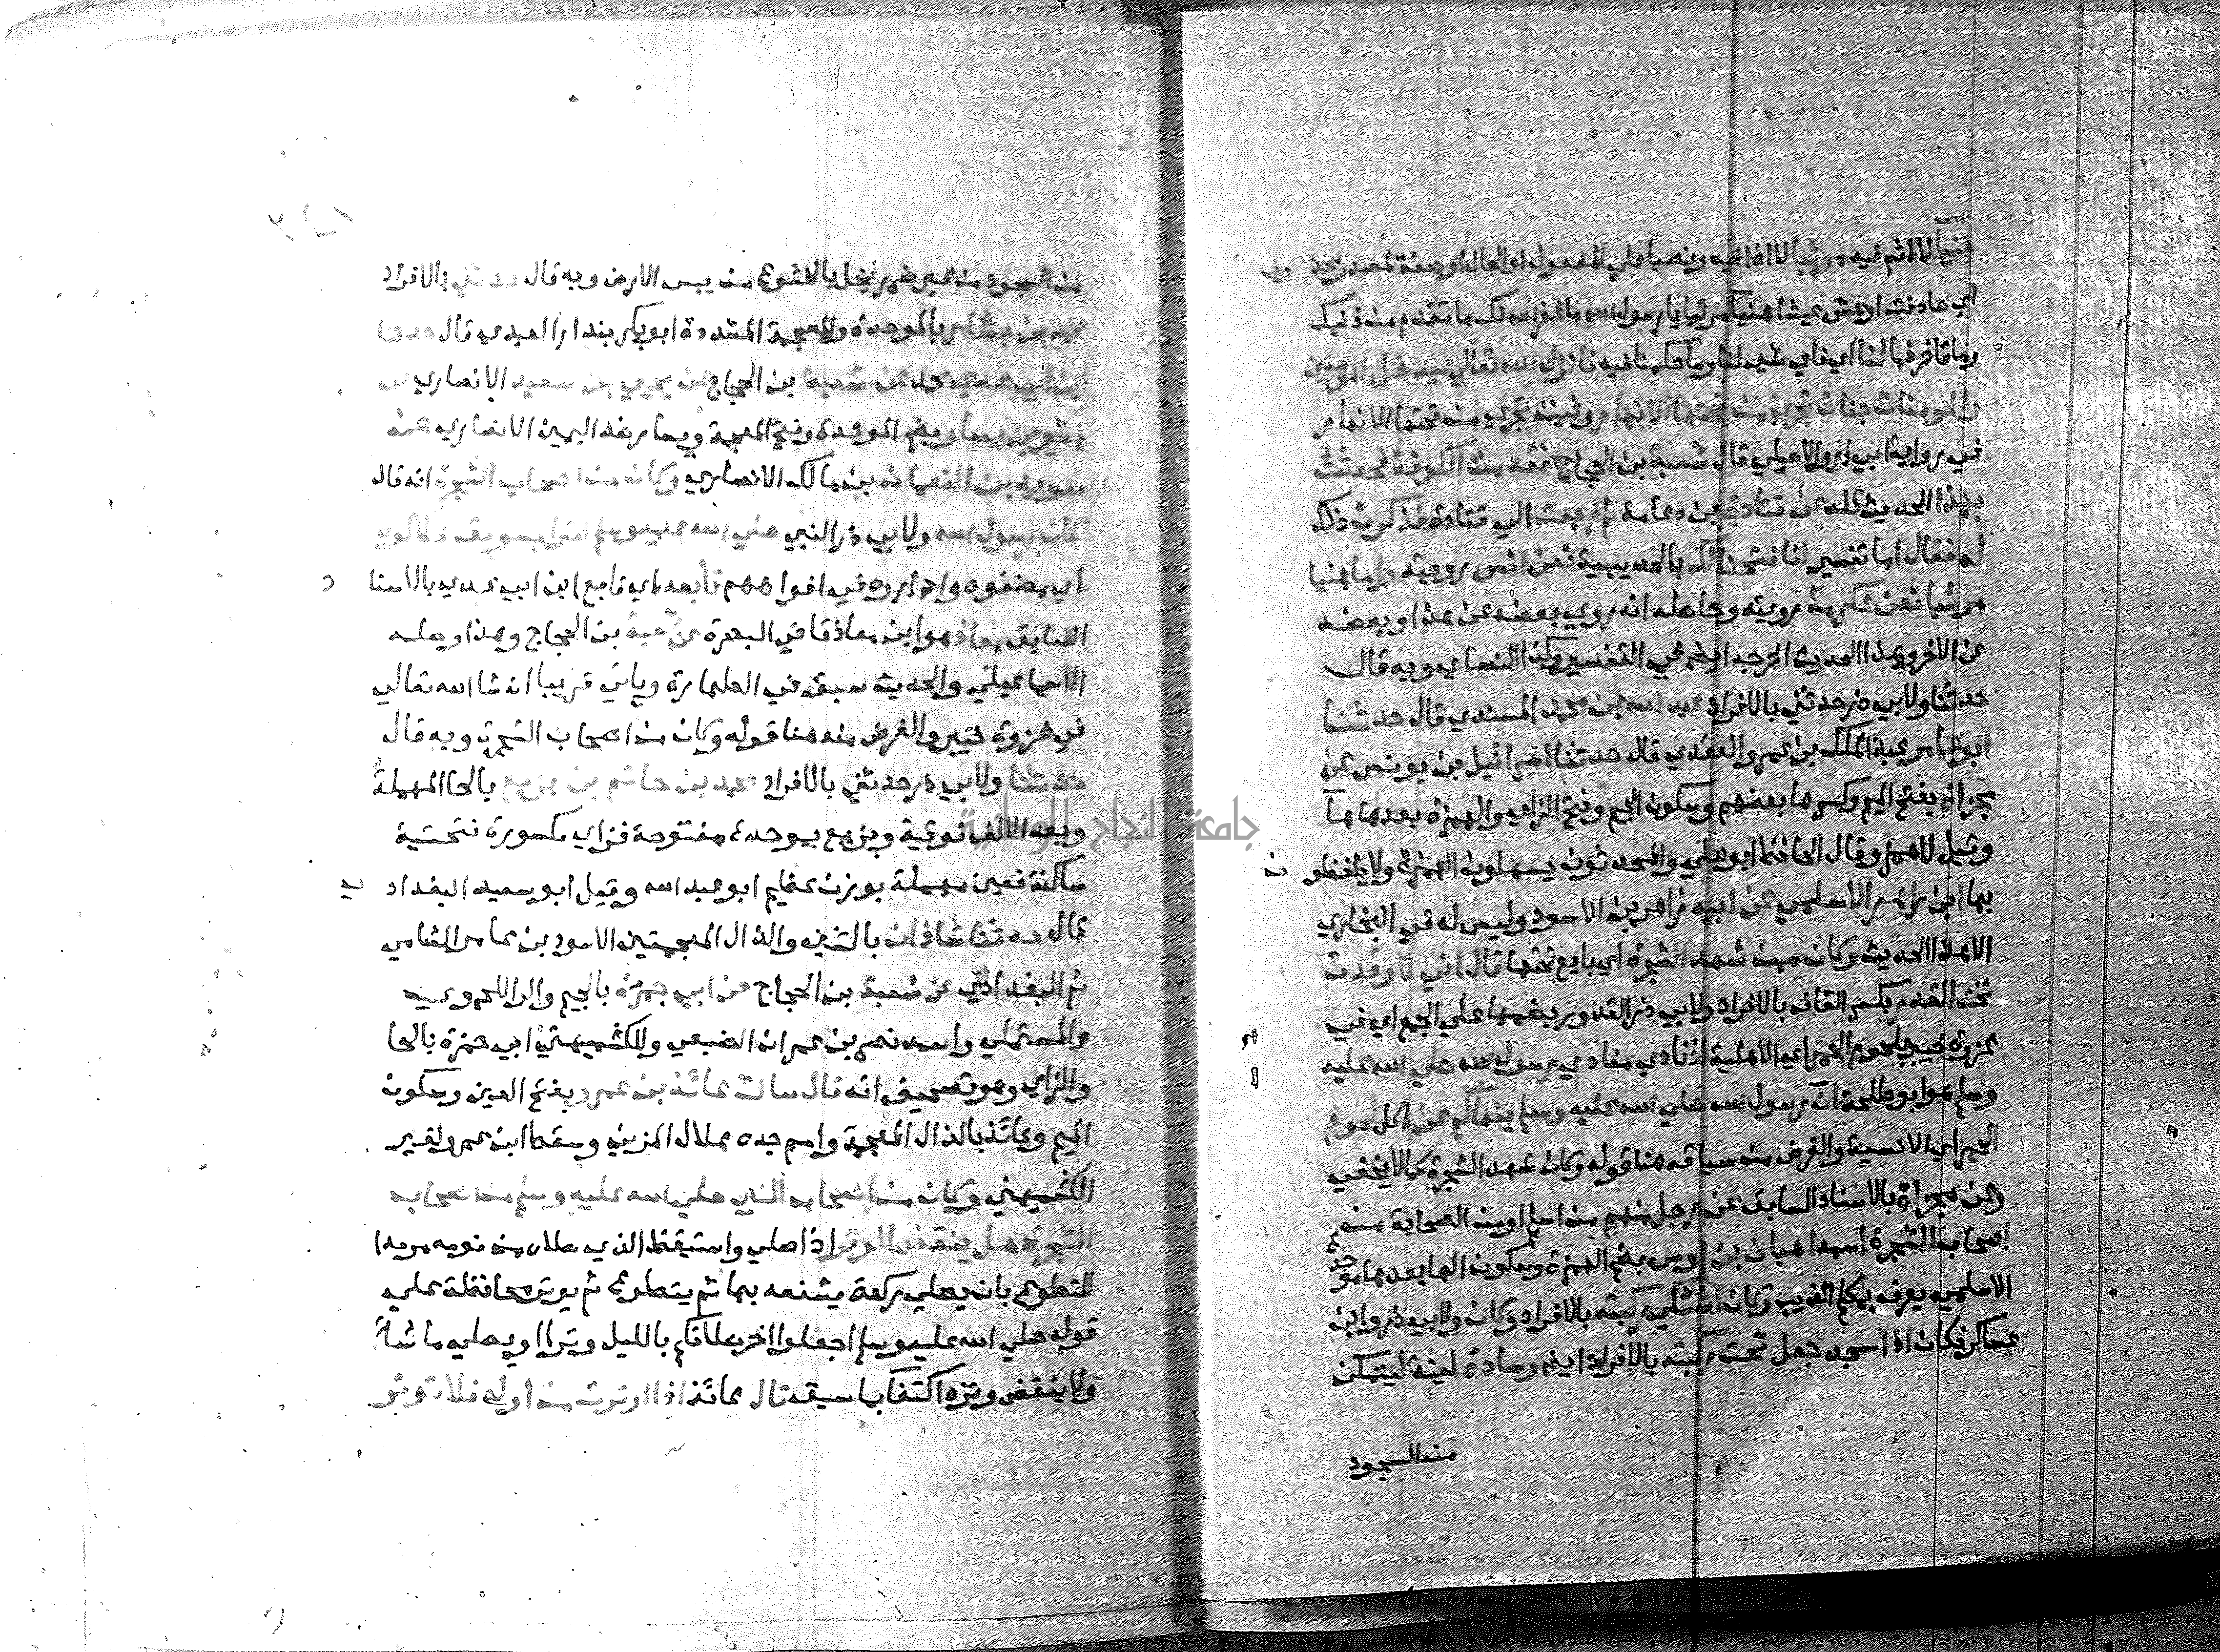 هنيا لا اثم فيه مريا لا اذا فيه ونصبا علي المفعول او الحال او صفة لمصدر محذ وف
اي صادفت او عش عيشا هنيا مريا يا رسول الله ما غفر الله لك ما تقدم من ذنبك
وما تاخر فما لنا اي فاي شي لنا وما حكمنا فيه فانزل الله تعالي ليدخل المومنين
والمومنات جنات تجري من تحتها الانهار وثبت تجري من تحتها الانهار
في رواية ابي ذر والاصيلي قال شعبة بن الحجاج فقدمت الكوفة فحدثت
بهذا الحديث كله عن قتادة بن دعامة ثم رجعت الي قتادة فذكرت ذلك
له فقال اما تفسير انا فتحنا لك بالحديبية فعن انس رويته واما هنيا
مريا فعن عكرمة رويته وحاصله انه روي بعضه عن هذا وبعضه
عن الاخر وهذا الحديث اخرجه ايضا في التفسير وكذا النساي وبه قال
حدثنا ولابي ذر حدثني بالافراد عبد الله بن محمد المسندي قال حدثنا
ابو عامر عبد الملك بن عمرو العقدي قال حدثنا اسرائيل بن يونس عن
مجزاة بفتح الميم وكسرها بعضهم وسكون الجيم وفتح الزاي والهمزة بعدها هآ
وقيل لا همز وقال الحافظ ابو علي والمحدثون يسهلون الهمزة ولا يلفظون
بها ابن زاهر الاسلمي عن ابيه زاهر بن الاسود وليس له في البخاري
الا هذا الحديث وكان ممن شهد الشجرة اي بايع تحتها قال اني لاوقدت
تحت القدر بكسر القاف بالافراد ولابي ذر القدور بضمها علي الجمع اي في
غزوة خيبر بلحوم الحمر اي الاهلية اذ نادي منادي رسول الله صلي الله عليه
وسلم هو ابو طلحة ان رسول الله صلي الله عليه وسلم ينهاكم عن اكل لحوم
الحمر اي الانسية والغرض من سياقه هنا قوله وكان شهد الشجرة كما لا يخفي
وعن مجزاة بالاسناد السابق عن رجل منهم من اسلم او من الصحابة من
اصحاب الشجرة اسمه اهبان بن اوس بضم الهمزة وسكون الها بعدها موحدة
الاسلمي يعرف بمكلم الذيب وكان اشتكي ركبته بالافراد وكان ولابي ذر وابن
عساكر فكان اذا سجد جعل تحت ركبته بالافراد ايضا وسادة لينة ليتمكن
من السجود
من السجود من غير ضرر يخل بالخشوع من يبس الارض وبه قال حدثني بالافراد
محمد بن بشار بالموحدة والمعجمة المشددة ابو بكر بندار العبدي قال حدثنا
ابن ابي عدي محمد عن شعبة بن الحجاج عن يحيي بن سعيد الانصاري عن
بشير بن يسار بضم الموحدة وفتح المعجمة ويسار ضد اليمين الانصاري عن
سويد بن النعمان بن مالك الانصاري وكان من اصحاب الشجرة انه قال
كان رسول الله ولابي ذر النبي صلي الله عليه وسلم اتوا بسويق فلاكوه
اي مضغوه واداروه في افواههم تابعه اي تابع ابن ابي عدي بالاسنا د
السابق معاذ هو ابن معاذ قاضي البصرة عن شعبة بن الحجاج وهذا وصله
الاسماعيلي والحديث سبق في الطهارة وياتي قريبا ان شا الله تعالي
في غزوة خيبر والغرض منه هنا قوله وكان من اصحاب الشجرة وبه قال
حدثنا ولابي ذر حدثني بالافراد محمد بن حاتم بن بزيع بالحا المهملة
وبعد الالف فوقية وبزيع بموحدة مفتوحة فزاي مكسورة فتحتية
ساكنة فعين مهملة بوزن عظيم ابو عبد الله وقيل ابو سعيد البغداد ي
قال حدثنا شاذان بالشين والذال المعجمتين الاسود بن عامر الشامي
ثم البغدادي عن شعبة بن الحجاج عن ابي جمرة بالجيم والرا للحموي
والمستملي واسمه نصر بن عمران الضبعي وللكشميهني ابي حمزة بالحا
والزاي وهو تصحيف انه قال سالت عائذ بن عمرو بفتح العين وسكون
الميم وعائذ بالذال المعجمة واسم جده هلال المزني وسقط ابن عمرو لغير
الكشميهني وكان من اصحاب النبي صلي الله عليه وسلم من اصحاب
الشجرة هل ينقض الوتر اذا صلي واستيقظ الذي صلاه من نومه مريدا
للتطوع بان يصلي ركعة يشفعه بها ثم يتطوع ثم يوتر محافظة علي
قوله صلي الله عليه وسلم اجعلوا اخر صلاتكم بالليل وترا او يصلي ما شاء
ولا ينقض وتره اكتفا بما سبق قال عائذ اذا اوترت من اوله فلا توتر
جامعة النجاح الوطنية